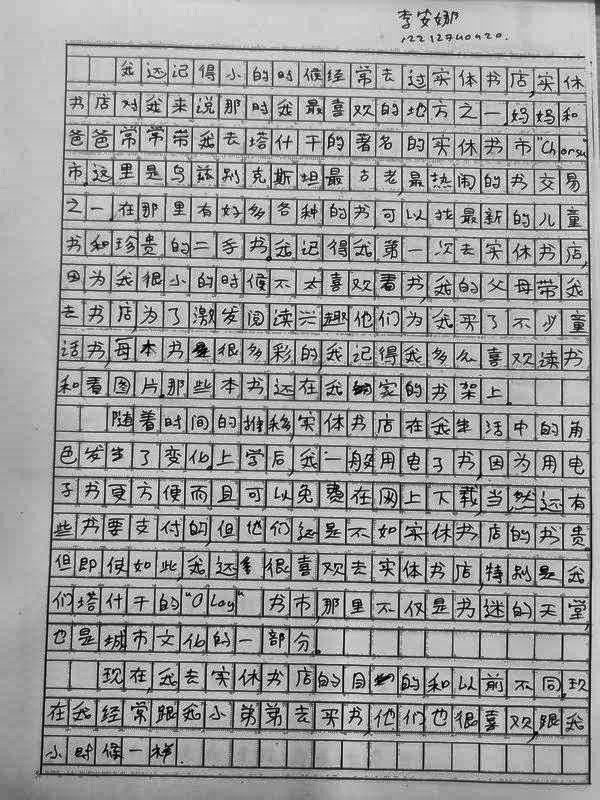 李安娜
我还记得小的时候经常去过实体书店,实体
书店对我来说那时我最喜欢的地方之一,妈妈和
爸爸常常带我去塔什干的著名的实体书市"Chorsu"
市,这里是乌兹别克斯坦最古老,最热闹的书交易
之一,在那里有好多各种的书,可以找最新的儿童
书和珍贵的二手书。我记得我第一次去实体书店,
因为我很小的时候不太喜欢看书,我的父母带我
去书店,为了激发阅读兴趣他们为我买了不少童
话书,每本书是很多彩的,我记得我多么喜欢读书
和看图片,那些本书还在我家的书架上.
随着时间的推移,实体书店在我生活中的角
色发生了变化,上学后,我一般用电子书,因为用电
子书更方便而且可以免费在网上下载,当然还有
些书要支付的但他们还是不如实体书店的书贵.
但即使如此,我还很喜欢去实体书店,特别是我
们塔什干的"Oloy"书市,那里不仅是书迷的天堂,
也是城市文化的一部分。
现在,我去实体书店的目的和以前不同,现
在我经常跟我小弟弟去买书,他们也很喜欢,跟我
小时候一样.